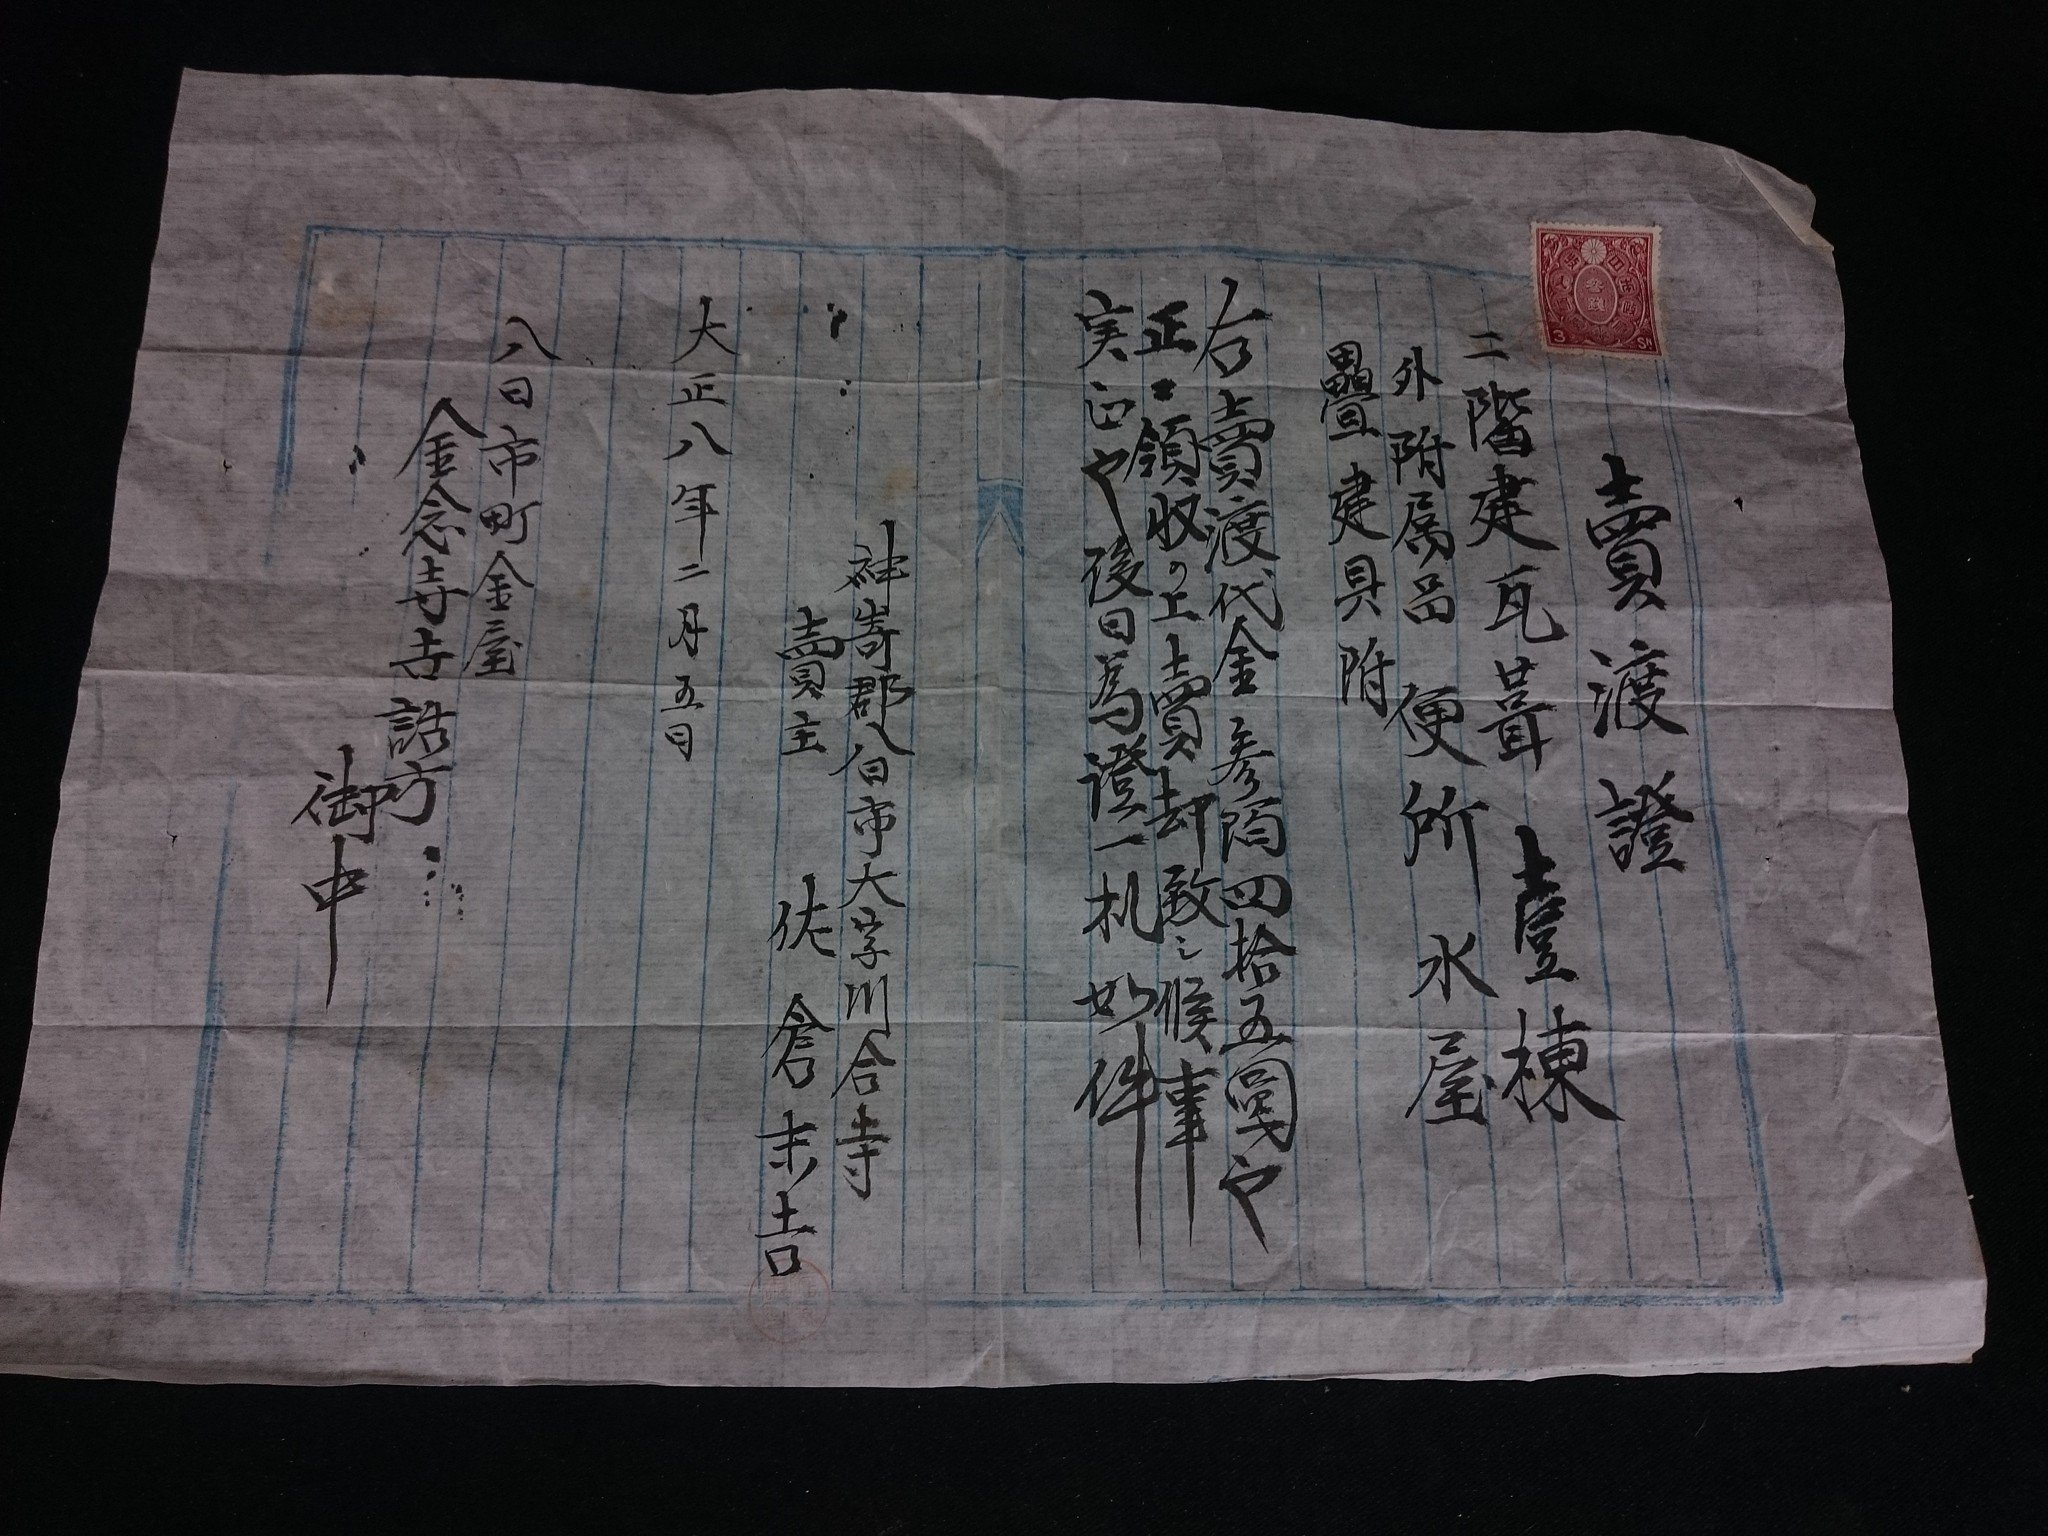 賣渡證
二階建瓦葺壹棟
外附属品便所水屋
疊建具附
右賣渡代金参陌四拾五圓也
正ニ領収の上賣却致シ候事
実正也後日為證一札如件
神嵜郡八日市大字川合寺
賣主 佐倉末吉
大正八年二月五日
八日市町金屋
金念寺
御中
参銭
3 Sn